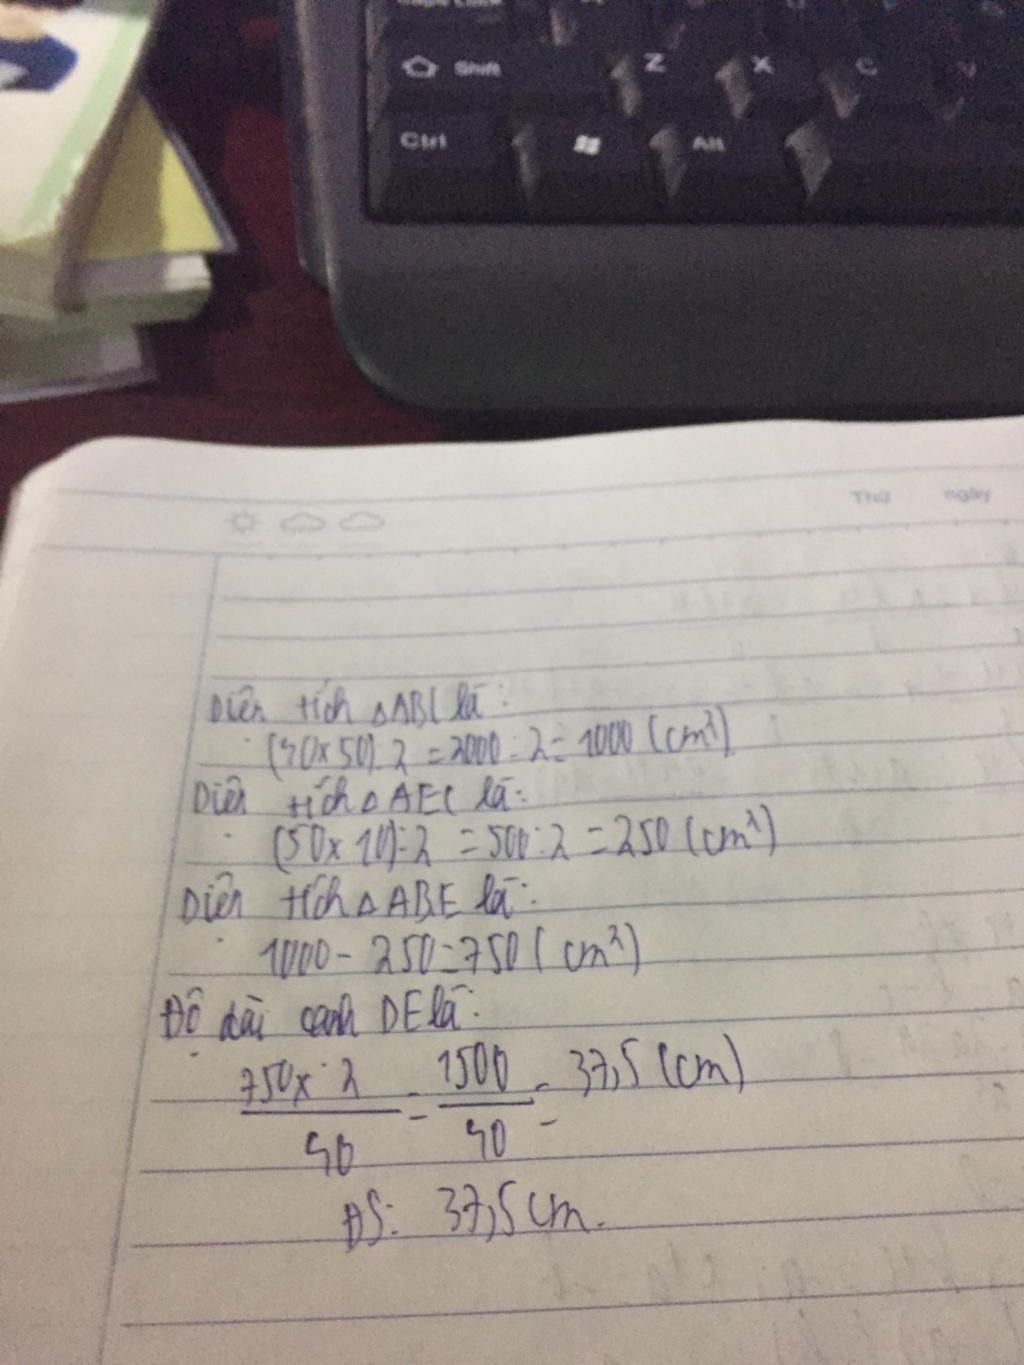 Caps Lock
Shift Z X C V
Ctrl Alt
Thứ ngày
Diện tích △ABC là:
(40x50):2 = 2000:2 = 1000 (cm²)
Diện tích △AEC là:
(50x10):2 = 500:2 = 250 (cm²)
Diện tích △ABE là:
1000 - 250 = 750 (cm²)
Độ dài cạnh DE là:
750x2/40 = 1500/40 = 37,5 (cm)
ĐS: 37,5 cm.